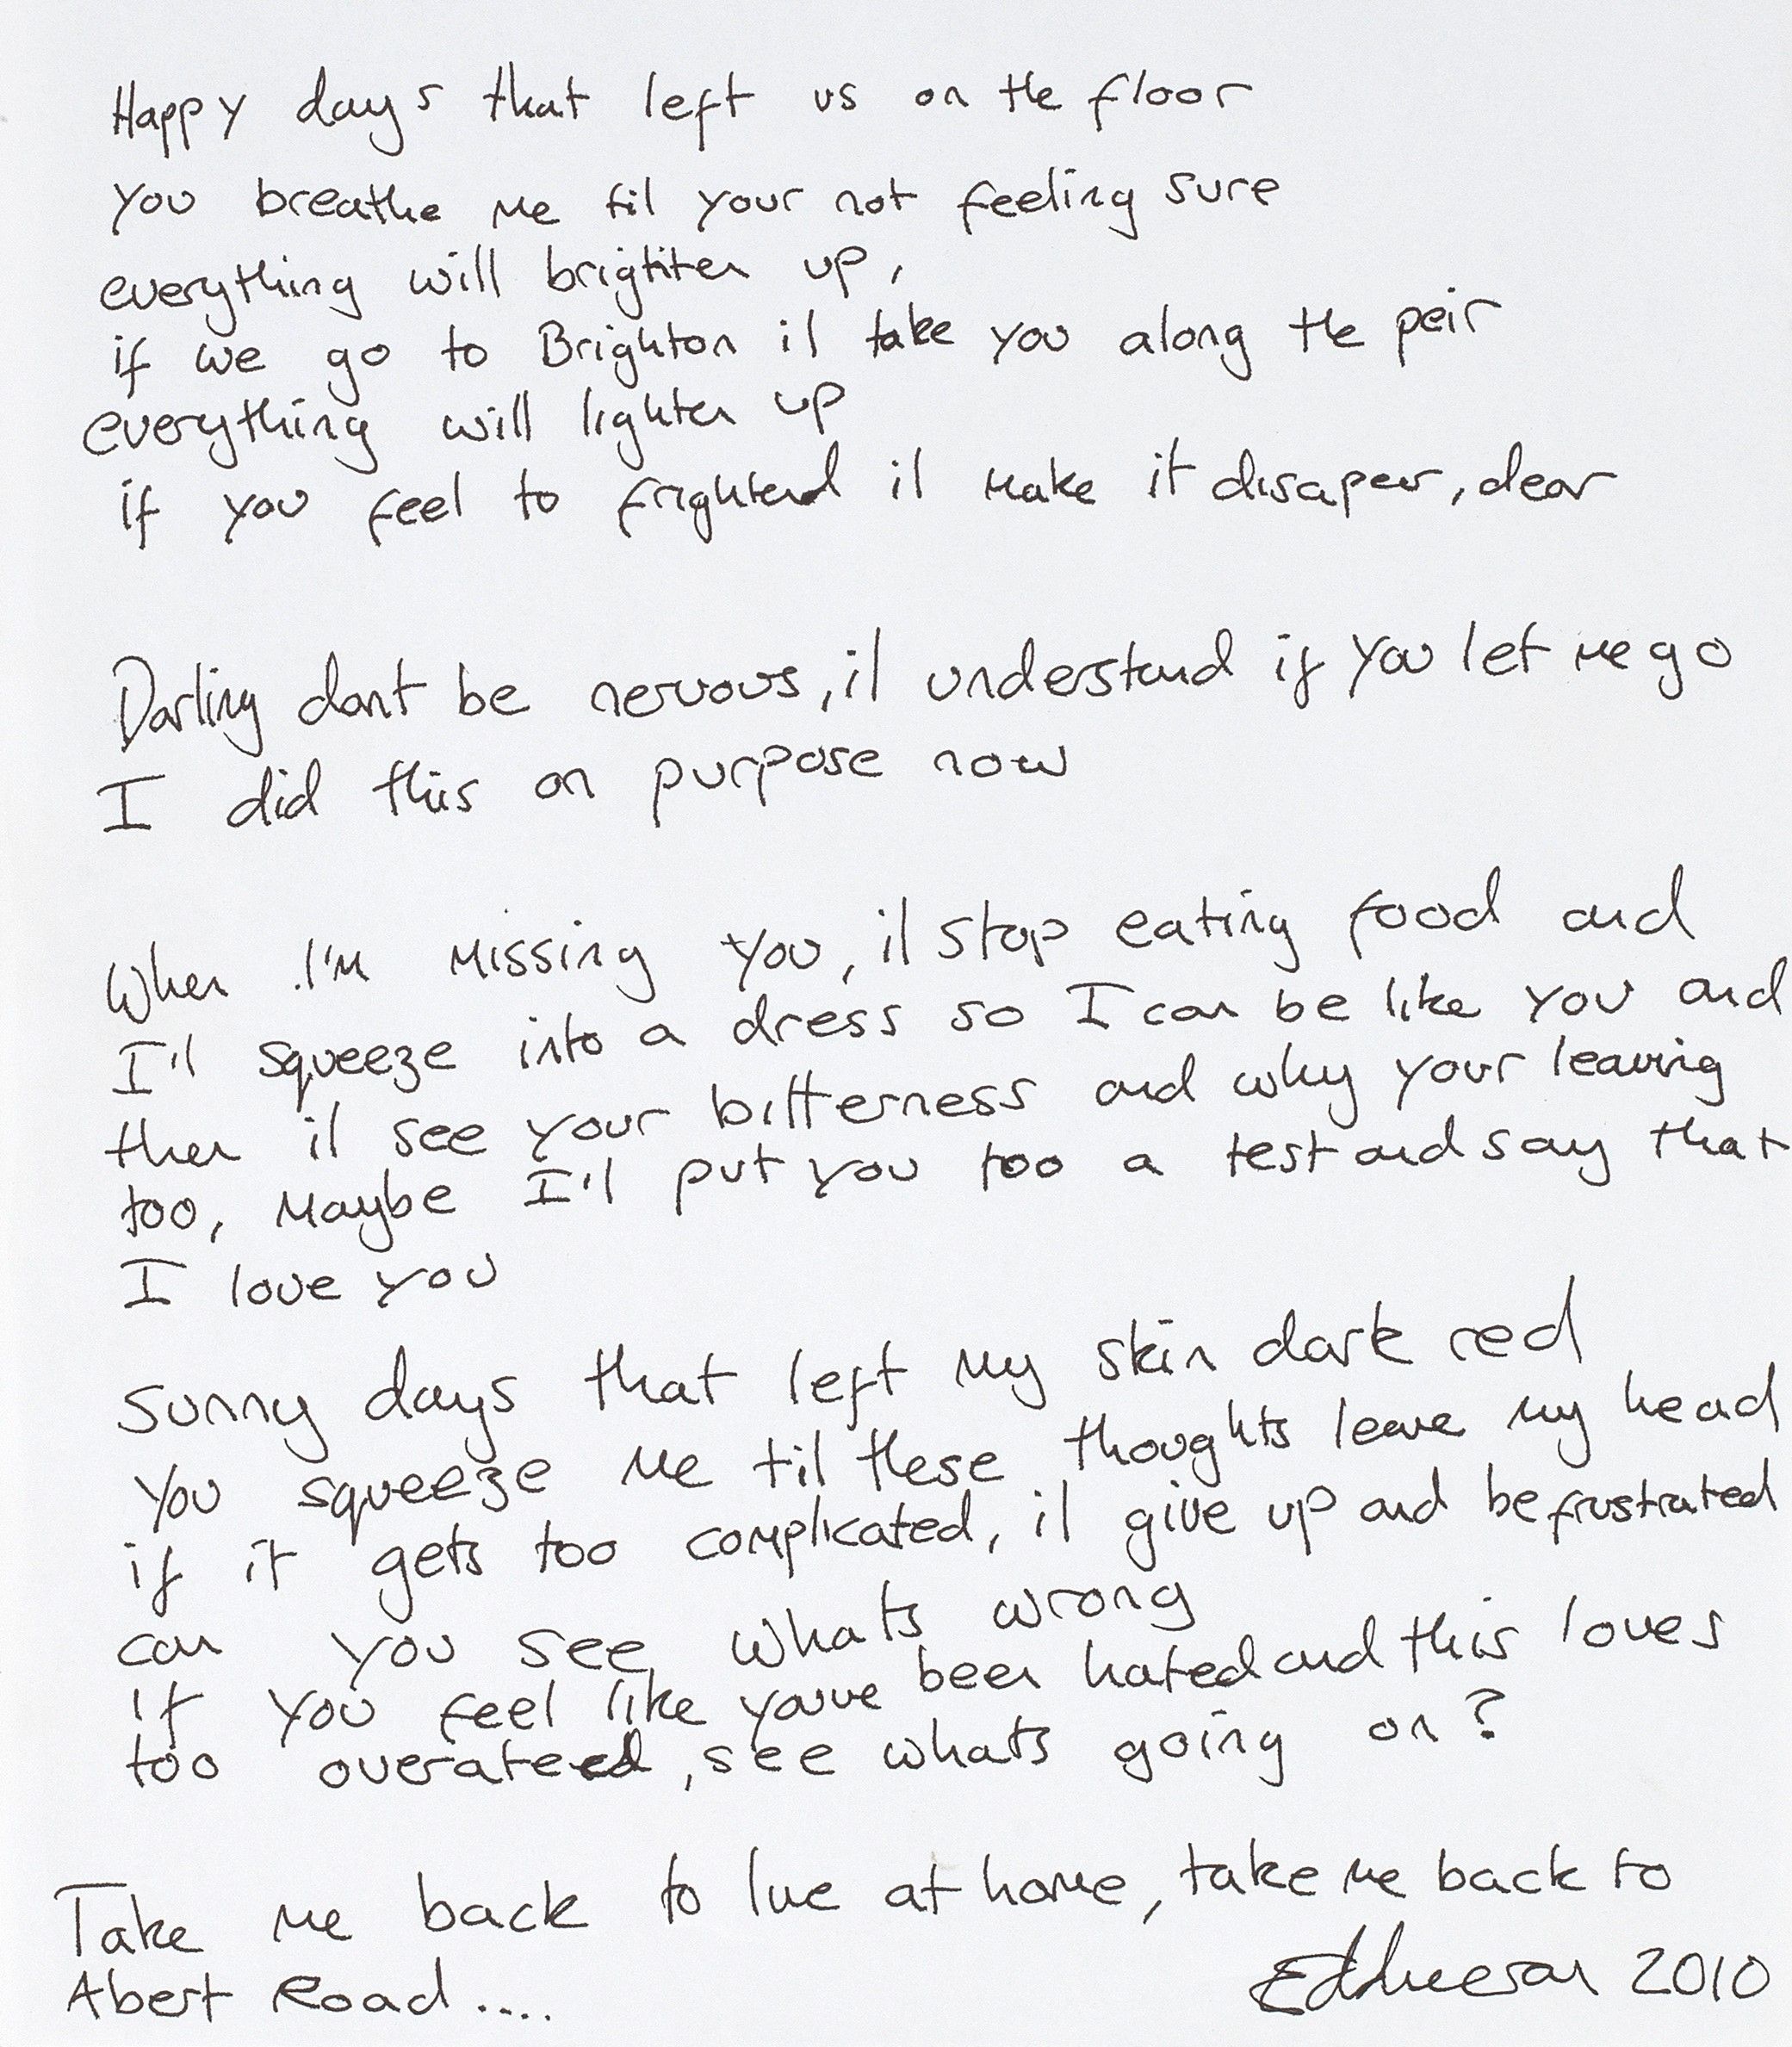 Happy days that left us on the floor
you breathe me til your not feeling sure
everything will brighten up,
if we go to Brighton il take you along the peir
everything will lighten up
if you feel to frightend il make it disapear, dear
Darling dont be nervous, il understand if you let me go
I did this on purpose now
When I'm missing you, il stop eating food and
I'll squeeze into a dress so I can be like you and
then il see your bitterness and why your leaving
too, Maybe I'll put you too a test and say that
I love you
Sunny days that left my skin dark red
you squeeze me til these thoughts leave my head
if it gets too complicated, il give up and be frustrated
can you see whats wrong
if you feel like youve been hated and this loves
too overateed, see whats going on?
Take me back to live at home, take me back to
Abert Road ....
Ed Sheeran 2010